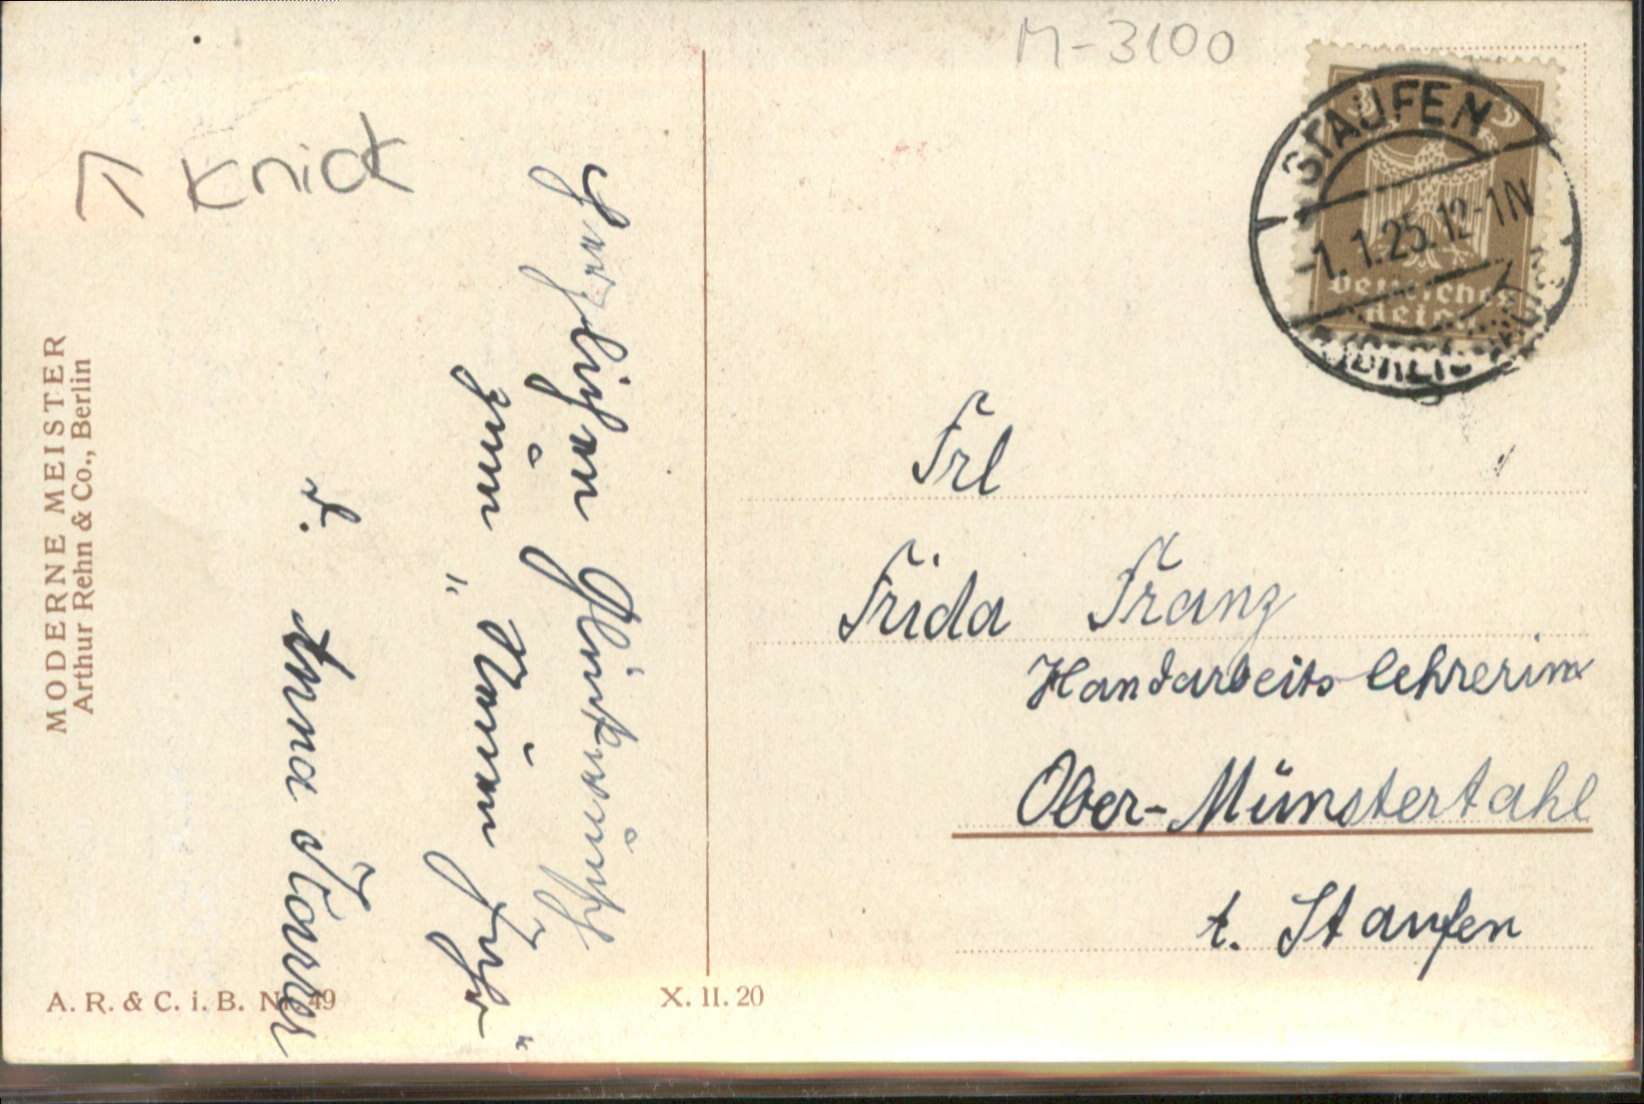 M-3100
↑ Knick
MODERNE MEISTER
Arthur Rehn & Co., Berlin
Herzlichen Glückwunsch
zum „Neuen Jahr“
Anna
A. R. & C. i. B. No 49
X. 11. 20
STAUFEN
-1. 1.25. 12-1N
3 3
Deutsches
Reich
Frl
Frida Franz
Handarbeitslehrerin
Ober-Münstertahl
t. Staufen